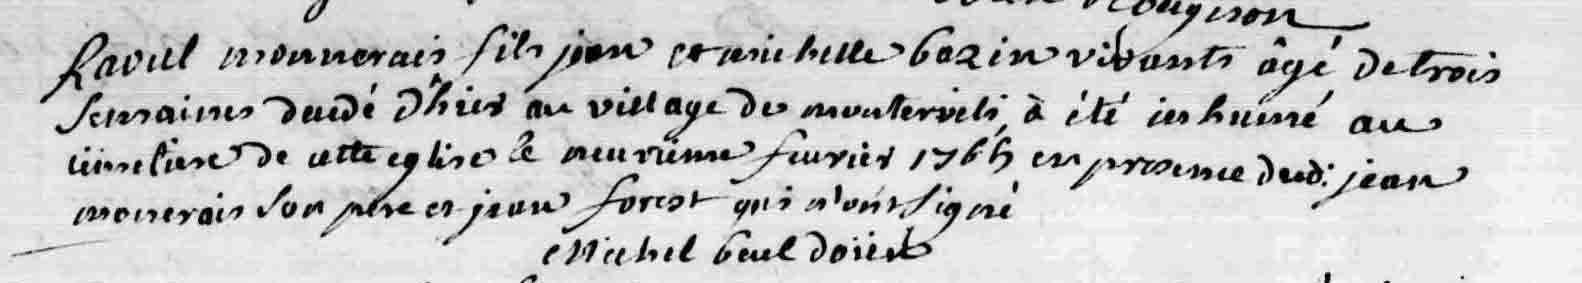 Raoul monnerais fils jean et michelle bazin vivants âgé de trois
semaines decedé d'hier au village de montervili à été inhumé au
cimetiere de cette eglise le neuvieme fevrier 1765 en presence dud: jean
monnerais son pere et jean forest qui n'ont signé
Michel beuldoier